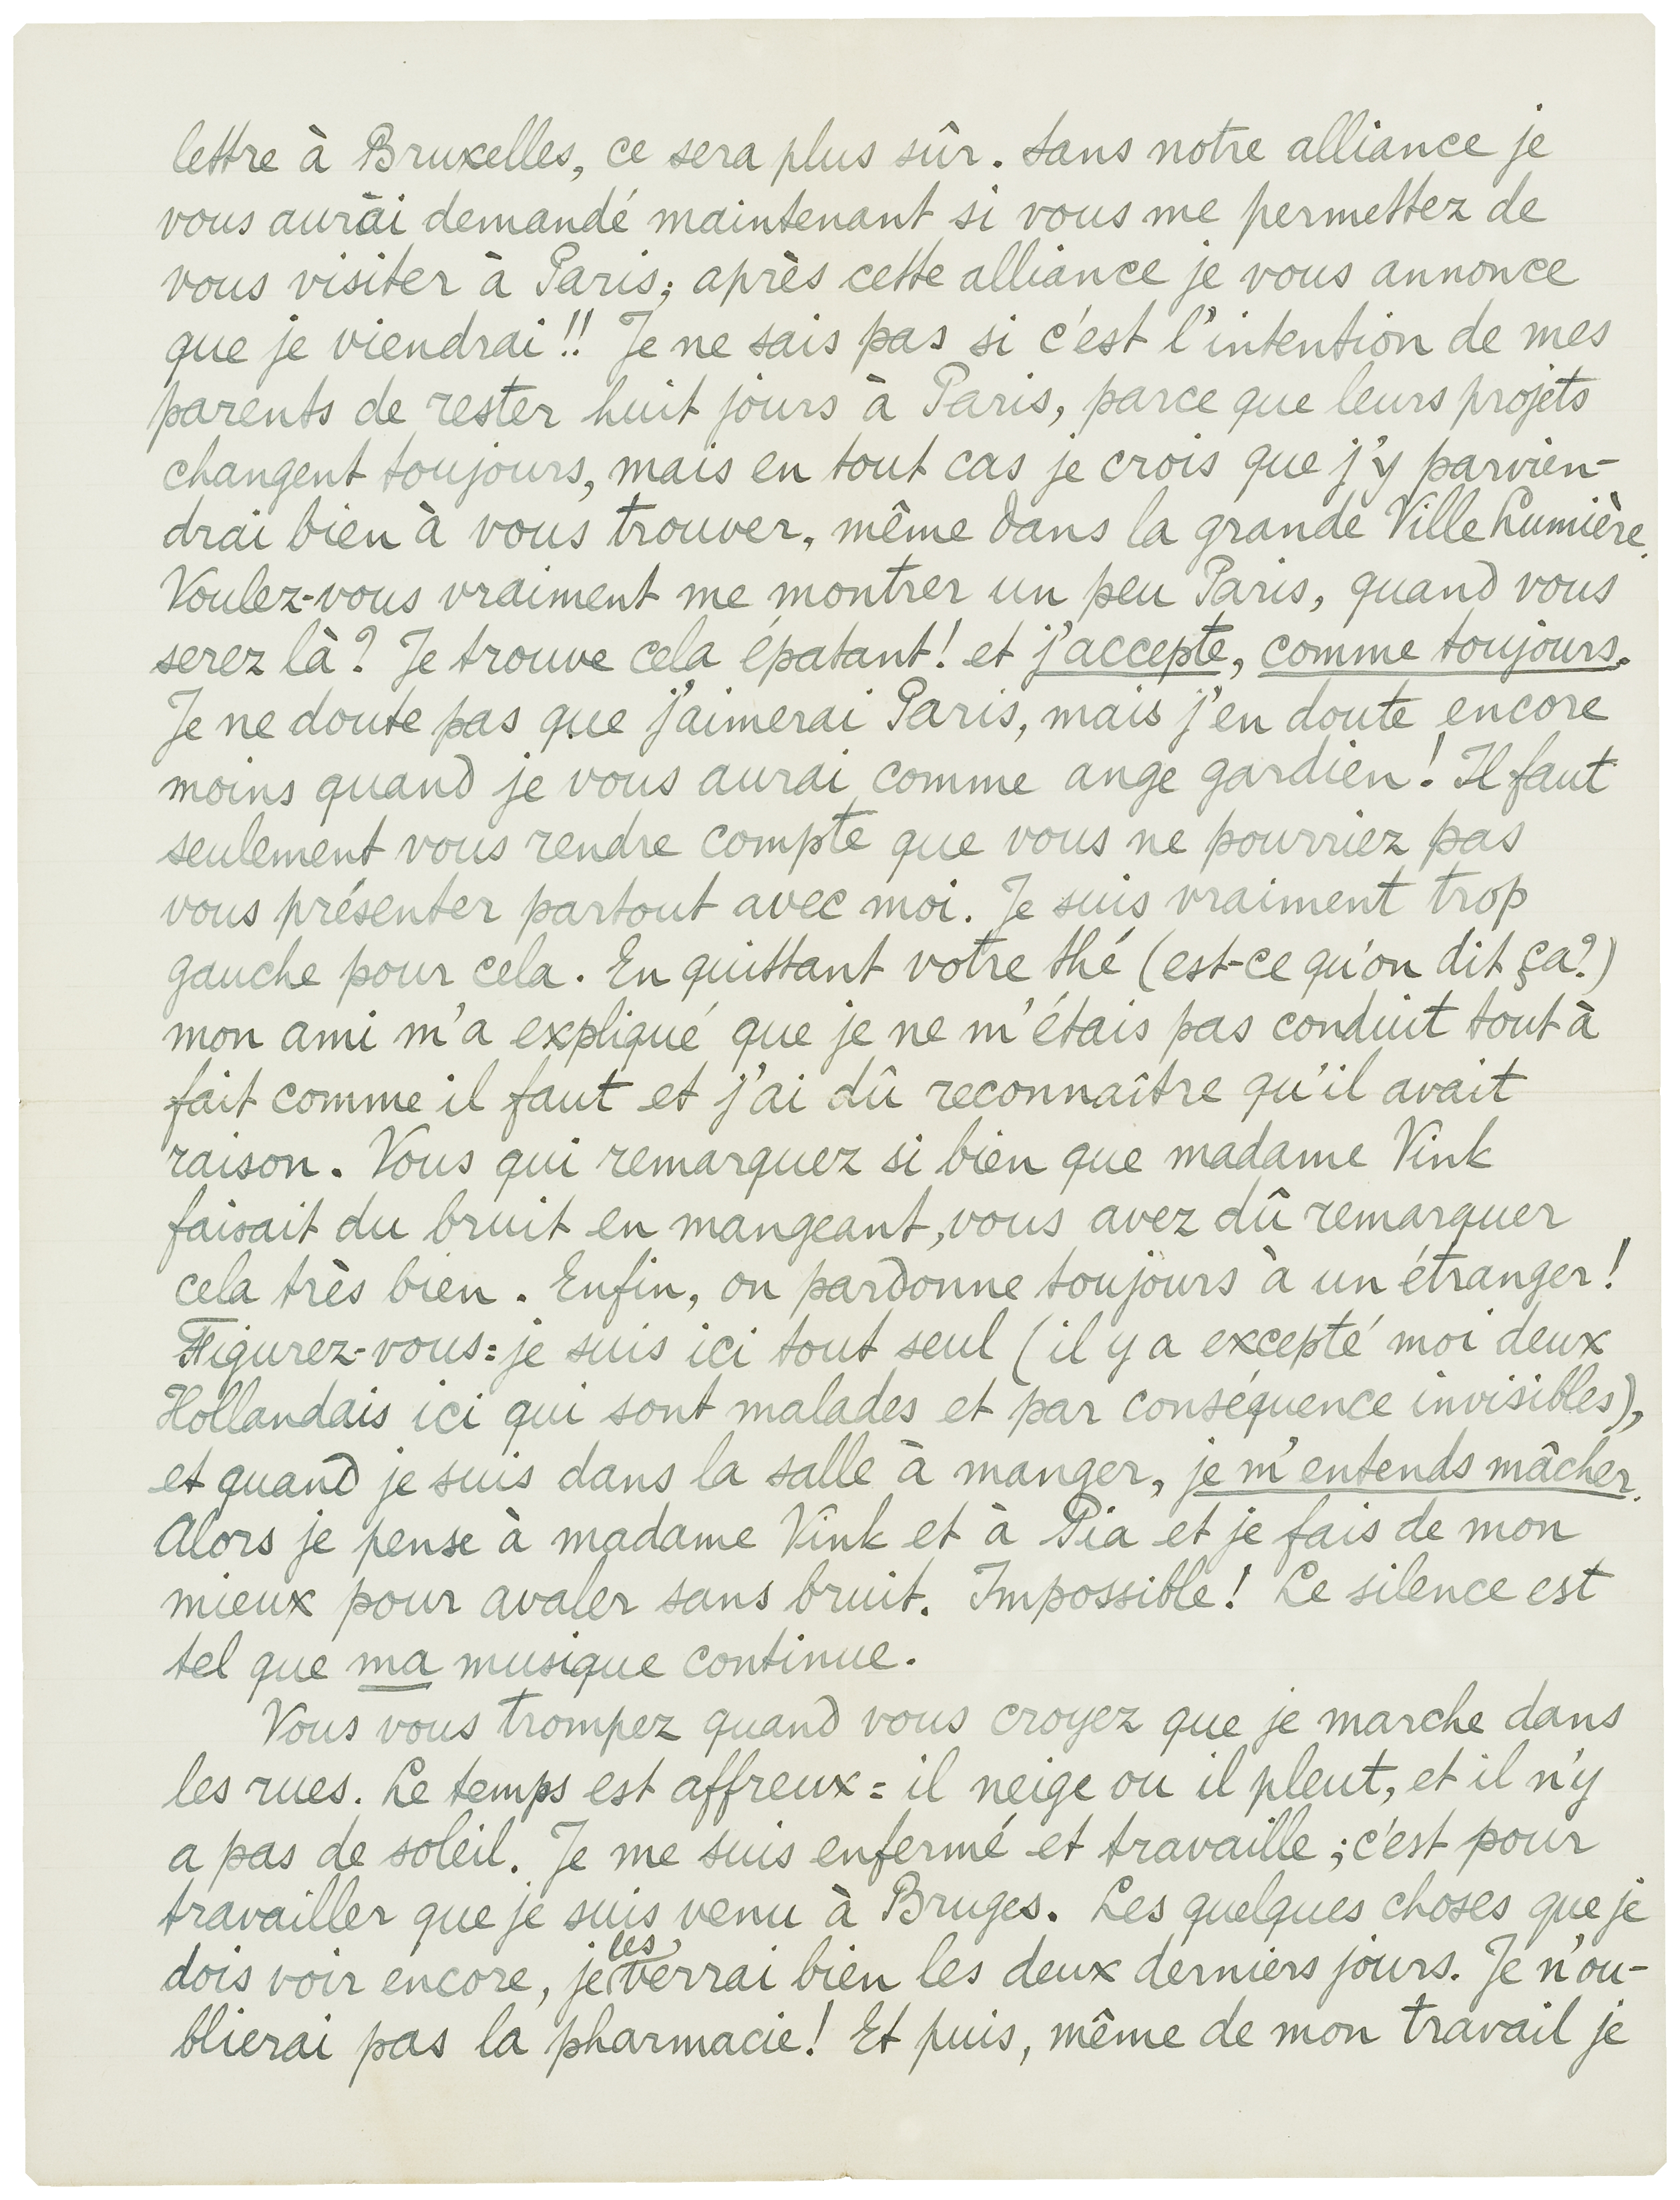 lettre à Bruxelles, ce sera plus sûr. Sans notre alliance je
vous aurai demandé maintenant si vous me permettez de
vous visiter à Paris; après cette alliance je vous annonce
que je viendrai!! Je ne sais pas si c'est l'intention de mes
parents de rester huit jours à Paris, parce que leurs projets
changent toujours, mais en tout cas je crois que j'y parvien-
drai bien à vous trouver, même dans la grande Ville Lumière.
Voulez-vous vraiment me montrer un peu Paris, quand vous
serez là? Je trouve cela épatant! et j'accepte, comme toujours.
Je ne doute pas que j'aimerai Paris, mais j'en doute encore
moins quand je vous aurai comme ange gardien! Il faut
seulement vous rendre compte que vous ne pourriez pas
vous présenter partout avec moi. Je suis vraiment trop
gauche pour cela. En quittant votre thé (est-ce qu'on dit ça?)
mon ami m'a expliqué que je ne m'étais pas conduit tout à
fait comme il faut et j'ai dû reconnaître qu'il avait
raison. Vous qui remarquez si bien que madame Vink
faisait du bruit en mangeant, vous avez dû remarquer
cela très bien. Enfin, on pardonne toujours à un étranger!
Figurez-vous: je suis ici tout seul (il y a excepté moi deux
Hollandais ici qui sont malades et par conséquence invisibles),
et quand je suis dans la salle à manger, je m'entends mâcher.
Alors je pense à madame Vink et à Pia et je fais de mon
mieux pour avaler sans bruit. Impossible! Le silence est
tel que ma musique continue.
Vous vous trompez quand vous croyez que je marche dans
les rues. Le temps est affreux: il neige ou il pleut, et il n'y
a pas de soleil. Je me suis enfermé et travaille; c'est pour
travailler que je suis venu à Bruges. Les quelques choses que je
dois voir encore, je les verrai bien les deux derniers jours. Je n'ou-
blierai pas la pharmacie! Et puis, même de mon travail je